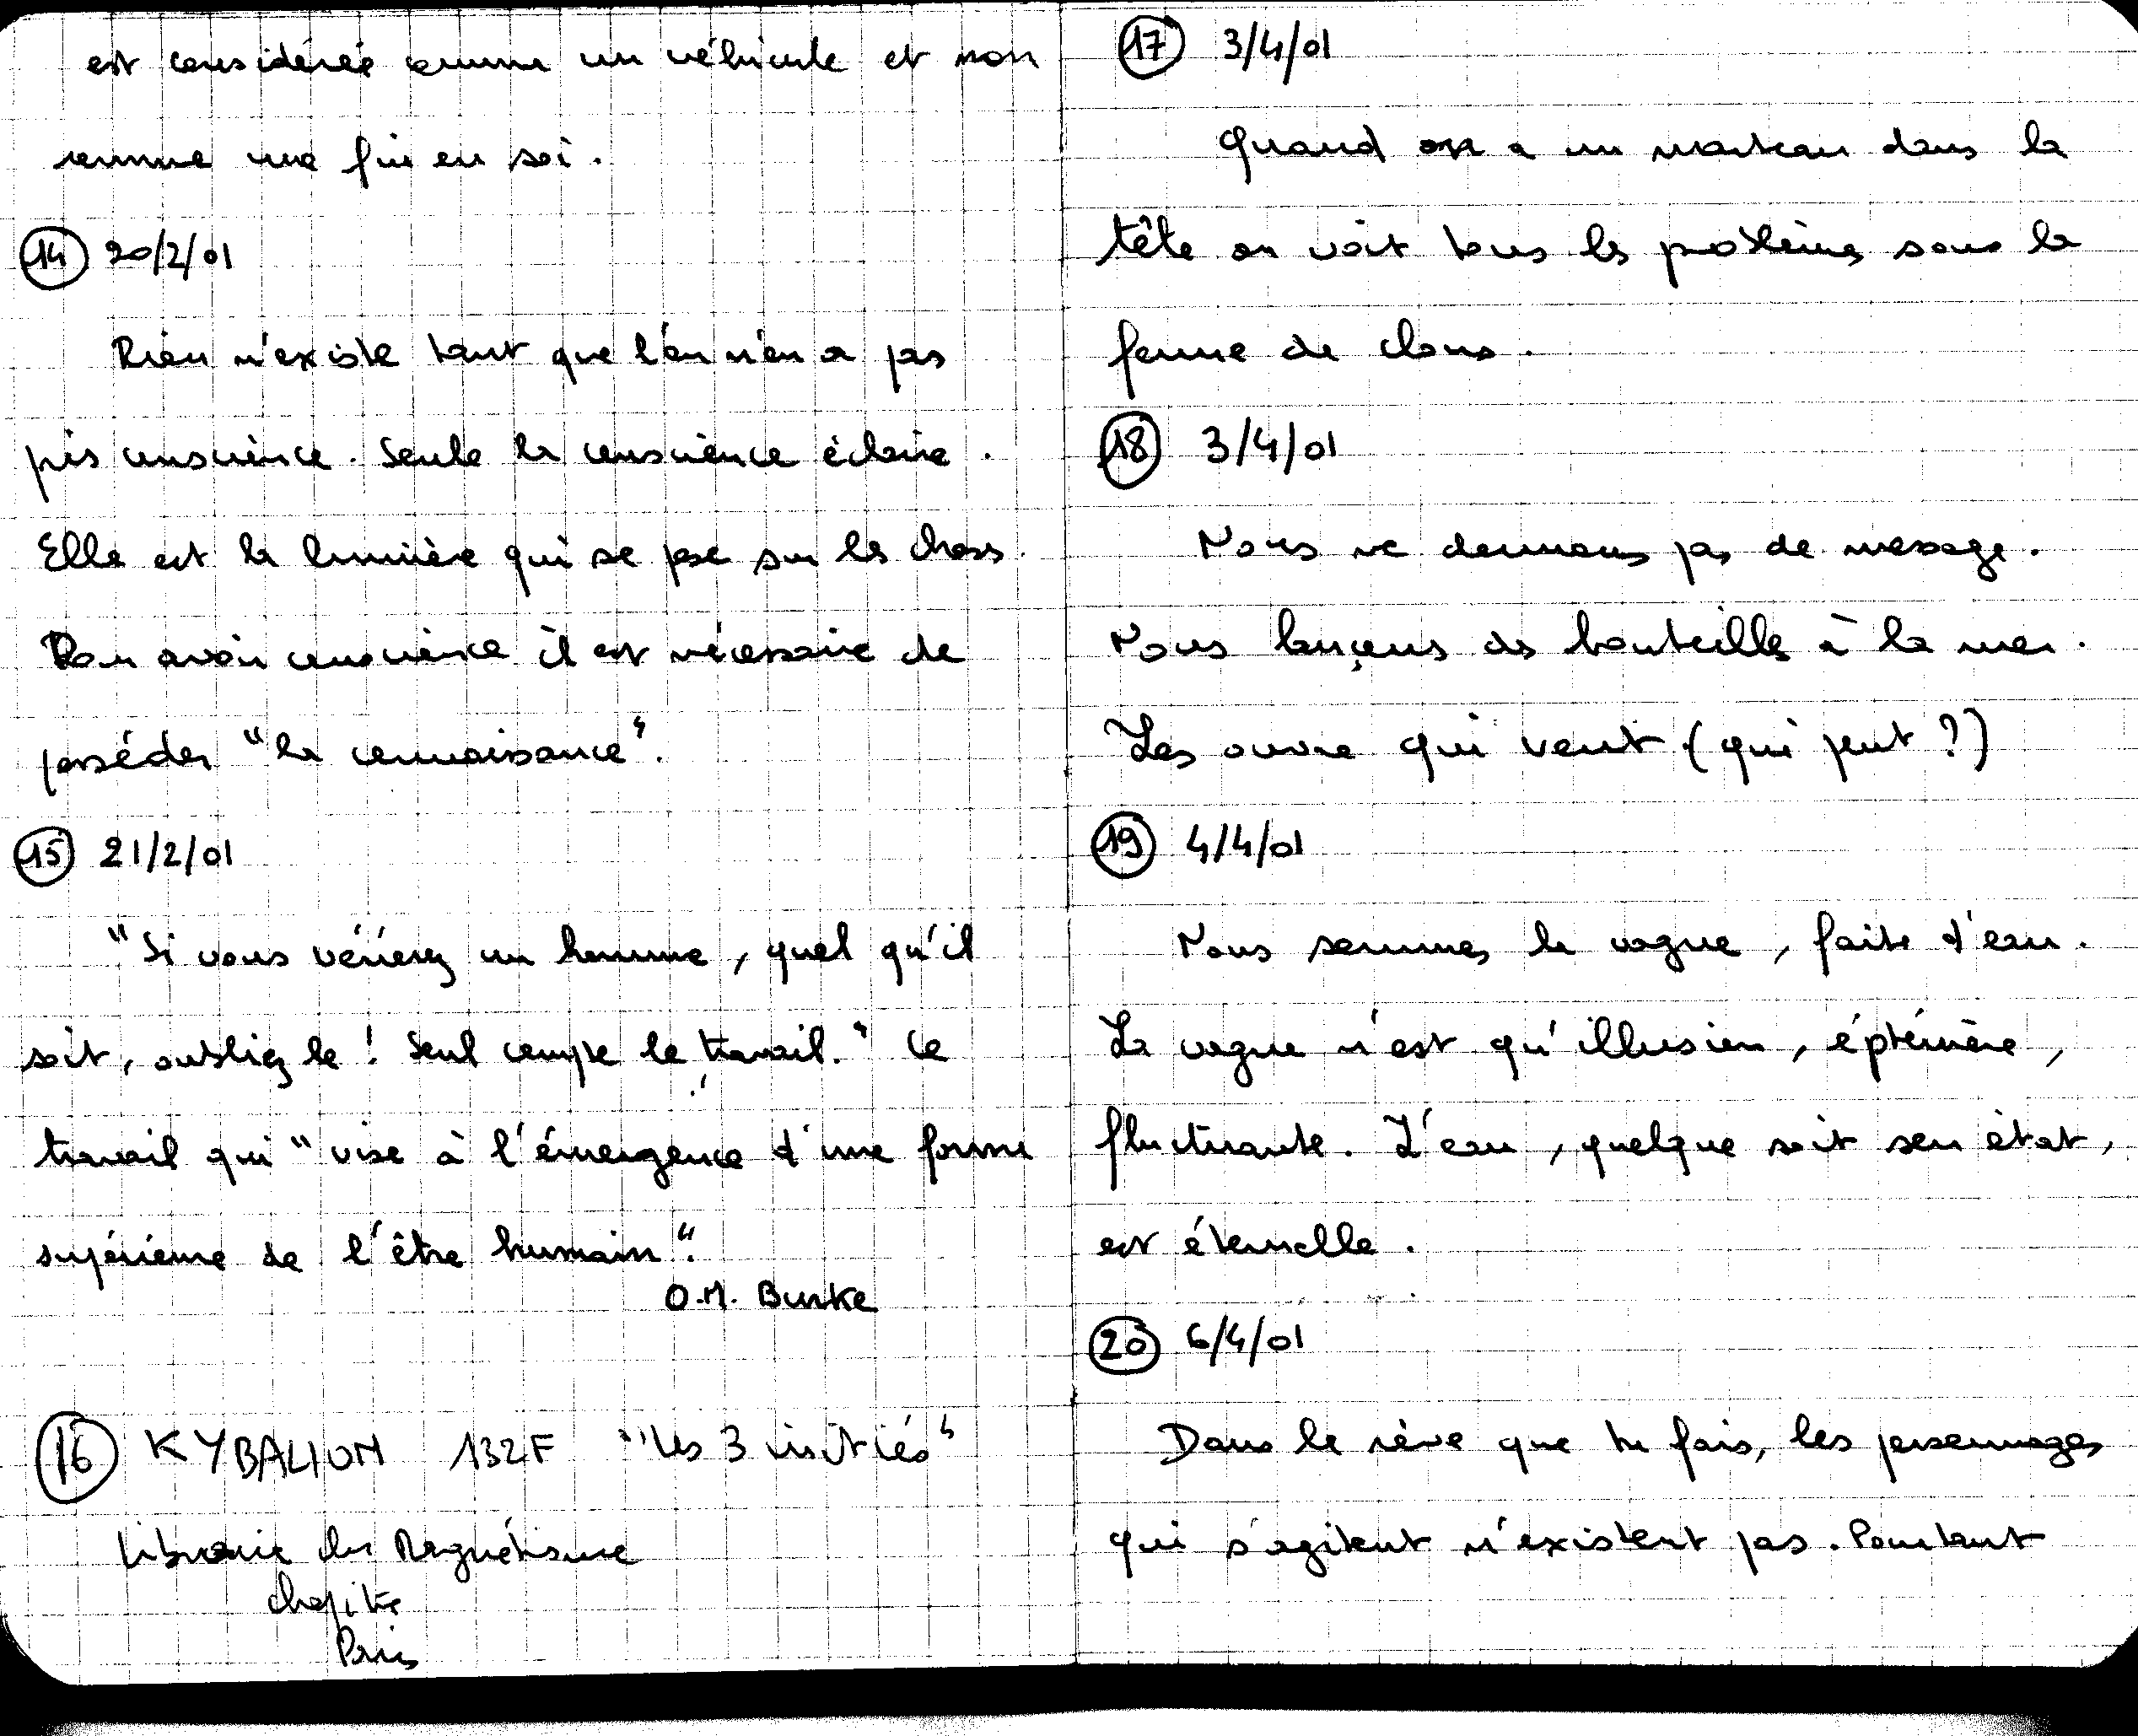 est considérée comme un véhicule et non
comme une fin en soi.
14 20/2/01
Rien n'existe tant que l'on n'en a pas
pris conscience. Seule la conscience éclaire.
Elle est la lumière qui se pose sur les choses.
Pour avoir conscience il est nécessaire de
posséder "la connaissance".
15 21/2/01
"Si vous vénérez un homme, quel qu'il
soit, oubliez le ! Seul compte le travail." Ce
travail qui "vise à l'émergence d'une forme
supérieure de l'être humain".
O.M. Burke
16 KYBALION 132F "Les 3 initiés"
Librairie du Magnétisme
chapitre
Paris
17 3/4/01
Quand on a un marteau dans la
tête on voit tous les problèmes sous la
forme de clous.
18 3/4/01
Nous ne donnons pas de message.
Nous lançons des bouteilles à la mer.
Les ouvre qui veut (qui peut ?)
19 4/4/01
Nous sommes la vague, faite d'eau.
La vague n'est qu'illusion, éphémère,
fluctuante. L'eau, quelque soit son état,
est éternelle.
20 6/4/01
Dans le rêve que tu fais, les personnages
qui s'agitent n'existent pas. Pourtant